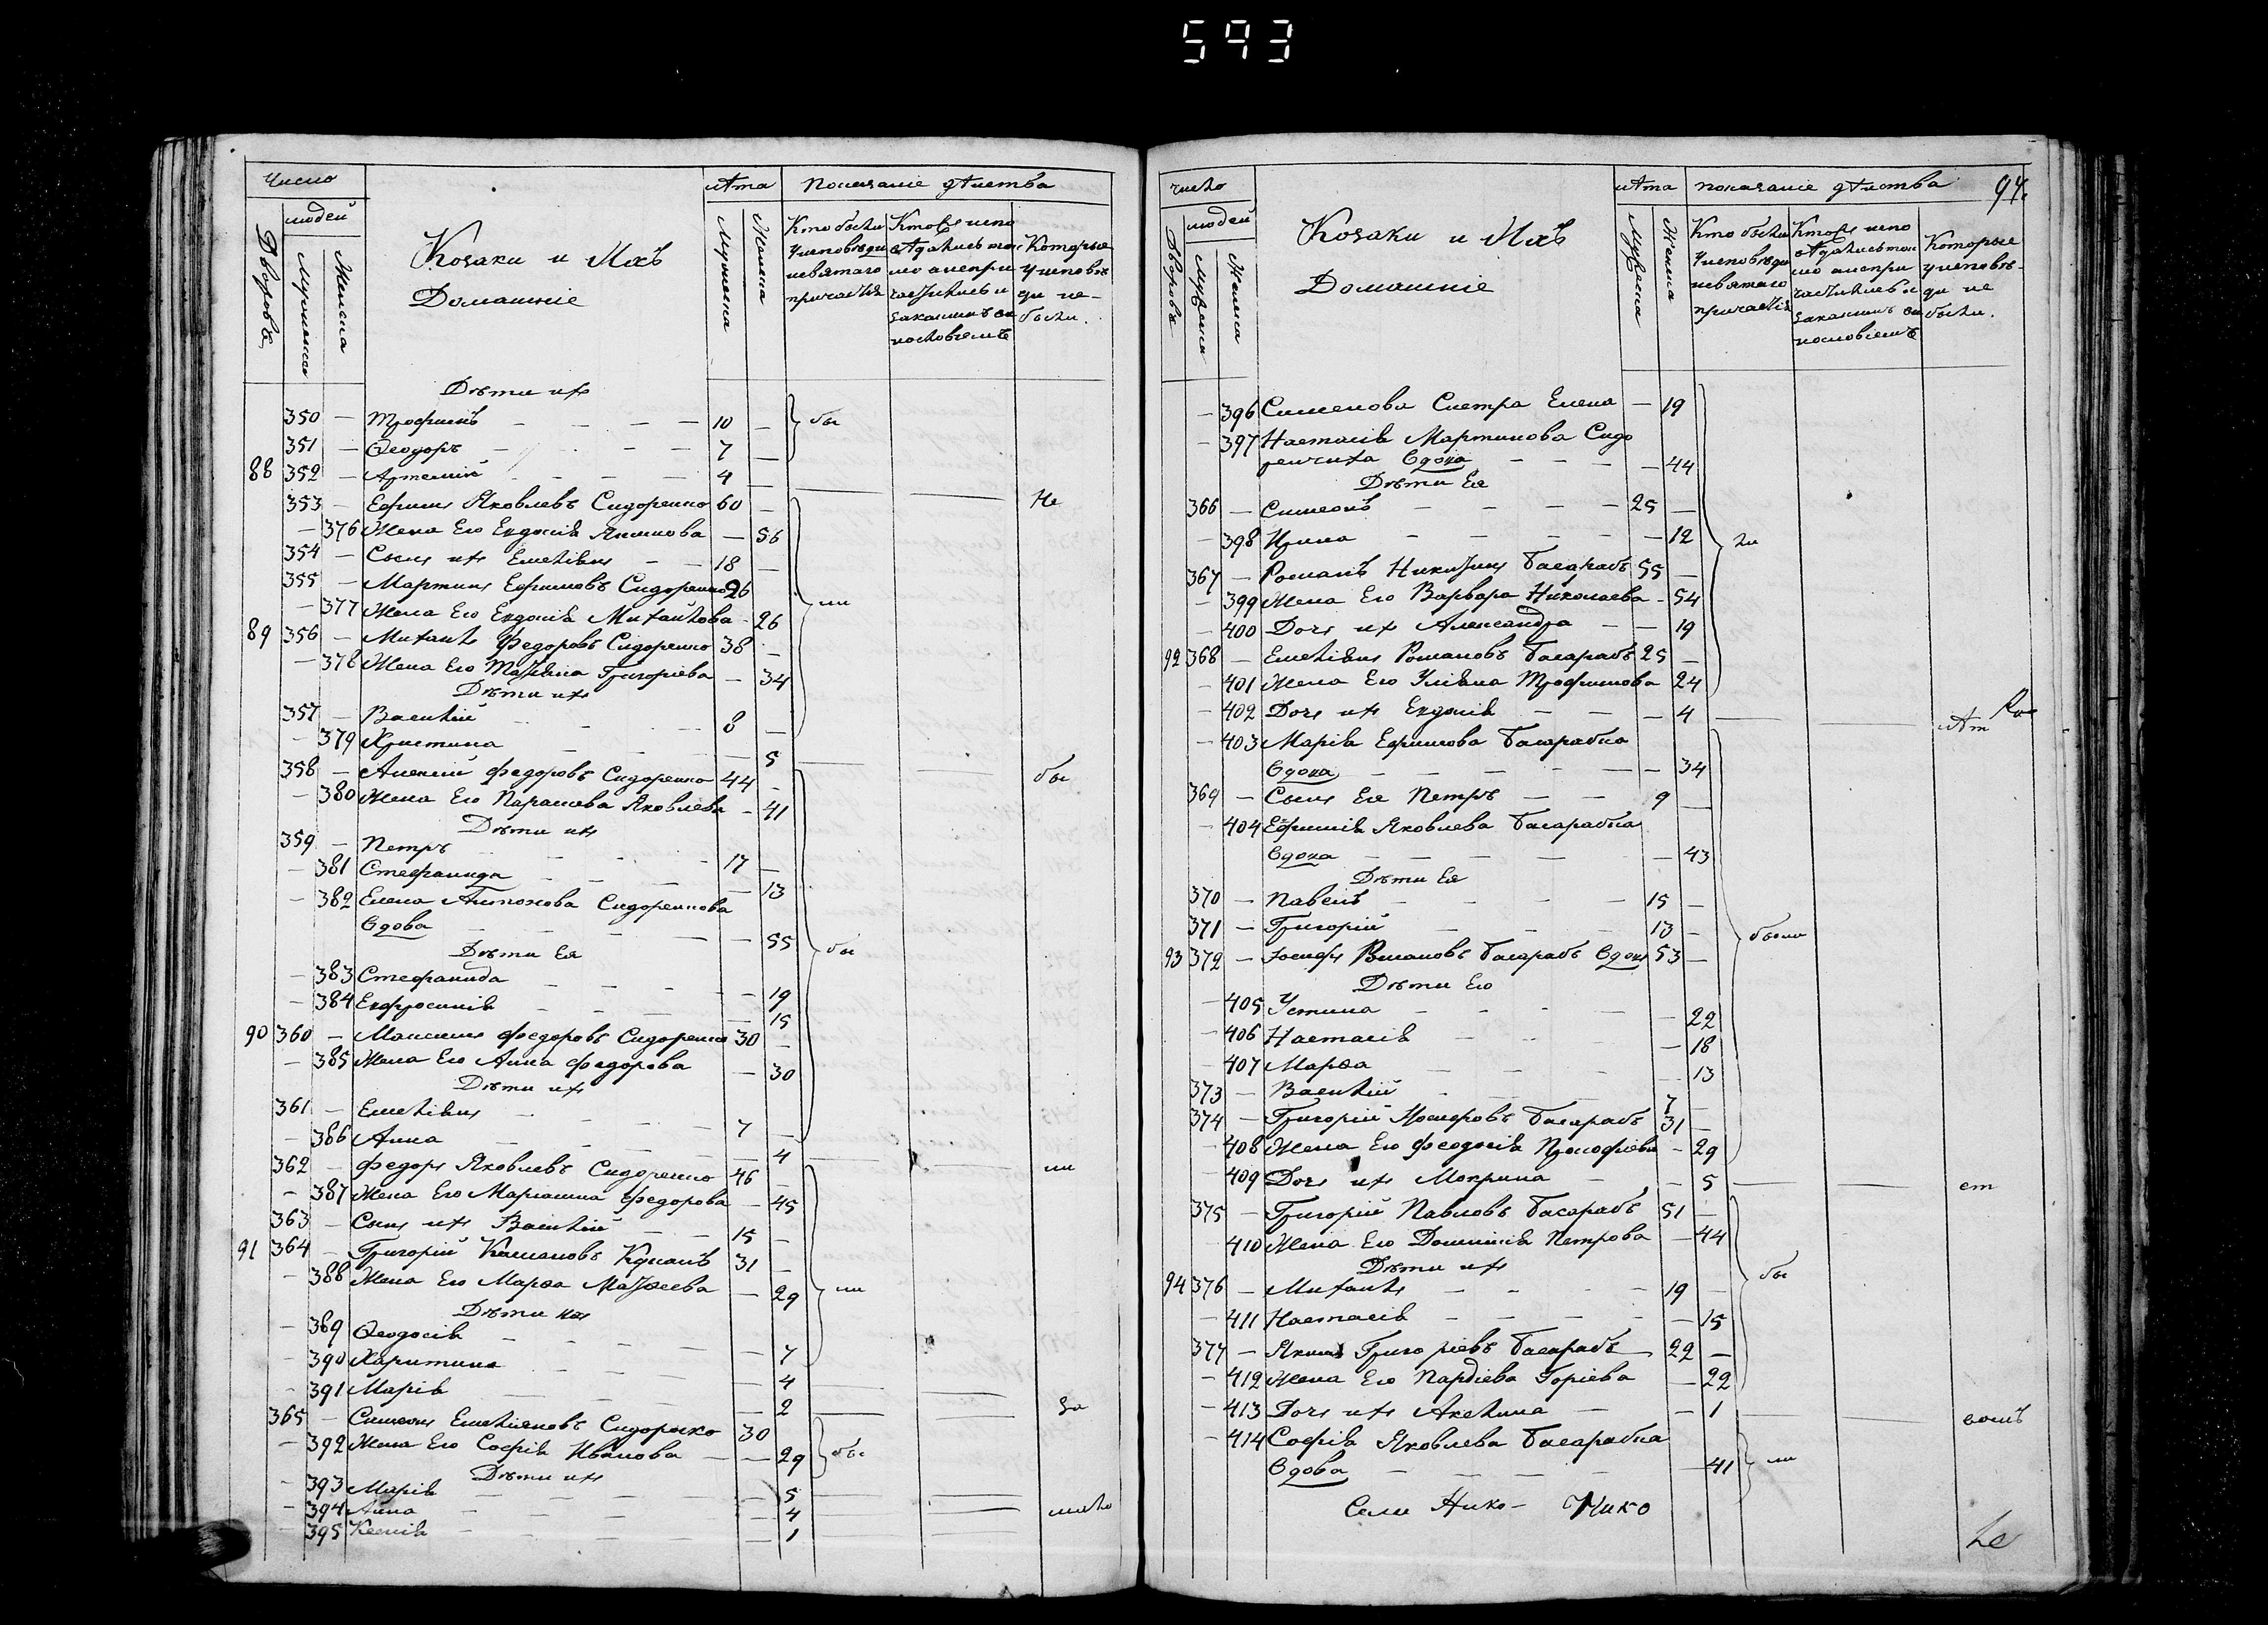 593
Число
лѣта Показаніе дѣйства
людей
Дворовъ
Мужеска
Женска
Козаки и Ихъ
Домашніе
Мужеска
Женска
Кто были
Уисповѣди
исвятаго
причастія
Которые
уисповѣ
ди не
были.
Дѣти ихъ
350 — Трофимъ — — — — 10 — бы
351 — Ѳеодоръ — — — 7 —
88 352 — Артемій — — — — 4 —
353 — Ефимъ Яковлевъ Сидоренко 60 — Не
— 376 Жена Его Евдокія Якимова — 56
354 — Сынъ ихъ Емеліянъ — — 18 —
355 — Мартинъ Ефимовъ Сидоренко 26
— 377 Жена Его Евдокія Михайлова — 26
89 356 — Михаилъ Федоровъ Сидоренко 38 —
— 378 Жена Его Татіяна Григоріева — 34
Дѣти ихъ
357 — Василій — — 8 —
— 379 Христина — — — 5
358 — Алексій Федоровъ Сидоренко 44 — бы
— 380 Жена Его Параскева Яковлева — 41
Дѣти ихъ
359 — Петръ — — — 17 —
— 381 Стефанида — — — 13
— 382 Елена Антонова Сидоренкова
Вдова — — — — 55 бы
Дѣти Ея
— 383 Стефанида — — — — 19
— 384 Евфросинія — — — — 15
90 360 — Максимъ Федоровъ Сидоренко 30 —
— 385 Жена Его Анна Федорова — 30
Дѣти ихъ
361 — Емеліянъ — — — 7 —
— 386 Анна — — — — 4
362 — Федоръ Яковлевъ Сидоренко 46 — ли
— 387 Жена Его Маріанна Федорова — 45
363 — Сынъ ихъ Василій — — 15 —
91 364 — Григорій 31 —
— 388 Жена Его Марѳа Матѳеева — 29 ли
Дѣти ихъ
— 389 Ѳеодосія — — — — 7
— 390 Харитина — — — 4
— 391 Марія — — — 2 За
365 — Симеонъ Емеліяновъ Сидоренко 30
— 392 Жена Его Софія Иванова — — 29 бы
Дѣти ихъ
— 393 Марія — — — — 5
— 394 Анна — — — — 4 мало
— 395 Ксенія — — — — 1
число
лѣта показаніе дѣйства 94.
людей
Дворовъ
Мужеска
Женска
Козаки и Ихъ
Домашніе
Мужеска
Женска
Кто были
Уисповѣди
исвятаго
причастія
Которые
уисповѣ-
ди не
были.
— 396 Сименова Сестра Елена — 19
— 397 Настасія Мартинова Сидо
ренчиха Вдова — — — 44
Дѣти Ея
366 — Симеонъ — — — — 25 —
— 398 Ирина — — — — 12 ли
367 — Романъ Никитинъ Басарабъ 55 —
— 399 Жена Его Варвара Николаева — 54
— 400 Дочь ихъ Александра — — 19
92 368 — Емеліянъ Романовъ Басарабъ 25 —
— 401 Жена Его Уліяна Трофимова 24
— 402 Дочь ихъ Евдокія — — — 4 лѣт
— 403 Марія Ефимова Басарабка
Вдова — — — — — 34
369 — Сынъ Ея Петръ — — 9 —
— 404 Ефимія Яковлева Басарабка
Вдова — — — — — 43
Дѣти Ея
370 — Павелъ — — — — 15 —
371 — Григорій — — — 13 — были
93 372 — Іосифъ Романовъ Басарабъ Вдовъ 53 —
Дѣти Его
— 405 Устина — — — — 22
— 406 Настасія — — — — 18
— 407 Марѳа — — — — 13
373 — Василій — — — 7 —
374 — Григорій Іосифовъ Басарабъ 31 —
— 408 Жена Его Феодосія Прокофіева — 29
— 409 Дочь ихъ Мокрина — — 5 ст
375 — Григорій Павловъ Басарабъ 51 —
— 410 Жена Его Домникія Петрова — 44
Дѣти ихъ
94 376 — Михаилъ — — — 19 — бы
— 411 Настасія — — — — 15
377 — Якимъ Григоріевъ Басарабъ — 22 —
— 412 Жена Его Горіева — 22
— 413 Дочь ихъ Акелина — — 1
— 414 Софія Яковлева Басарабка
Вдова — — — — 41 ли
Села Нико- Нико